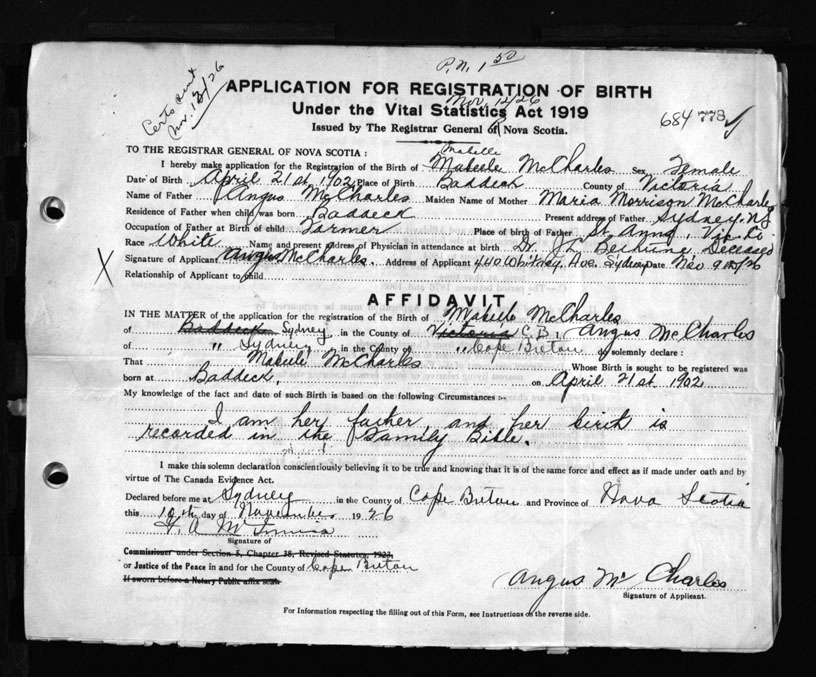 P.N. 1 50
Certs sent
Nov. 13/26
APPLICATION FOR REGISTRATION OF BIRTH
Nov. 12/26
Under the Vital Statistics Act 1919
684 778
Issued by The Registrar General of Nova Scotia.
TO THE REGISTRAR GENERAL OF NOVA SCOTIA :
Mabelle
I hereby make application for the Registration of the Birth of Mabelle McCharles Sex Female
Date of Birth April 21st 1902 Place of Birth Baddeck County of Victoria
Name of Father Angus McCharles Maiden Name of Mother Maria Morrison McCharles
Residence of Father when child was born Baddeck Present address of Father Sydney, N.S
Occupation of Father at Birth of child Farmer Place of birth of Father St Anns, Vic. Co.
Race White Name and present address of Physician in attendance at birth Dr. J. L. Bethune, Deceased
X Signature of Applicant Angus McCharles. Address of Applicant 440 Whitney Ave. Sydney Date Nov 9 1926
Relationship of Applicant to child
AFFIDAVIT
IN THE MATTER of the application for the registration of the Birth of Mabelle McCharles
of Baddeck Sydney in the County of Victoria C.B., Angus McCharles
of " Sydney in the County of " Cape Breton do solemnly declare :
That Mabelle McCharles Whose Birth is sought to be registered was
born at Baddeck, on April 21st 1902
My knowledge of the fact and date of such Birth is based on the following Circumstances :-
I am her father, and her birth is
recorded in the Family Bible.
I make this solemn declaration conscientiously believing it to be true and knowing that it is of the same force and effect as if made under oath and by
virtue of The Canada Evidence Act.
Declared before me at Sydney in the County of Cape Breton and Province of Nova Scotia
this 10th day of November 1926
Signature of
Commissioner under Section 5, Chapter 38, Revised Statutes, 1923.
or Justice of the Peace in and for the County of Cape Breton
If sworn before a Notary Public affix seal.
Angus McCharles
Signature of Applicant.
For Information respecting the filling out of this Form, see Instructions on the reverse side.